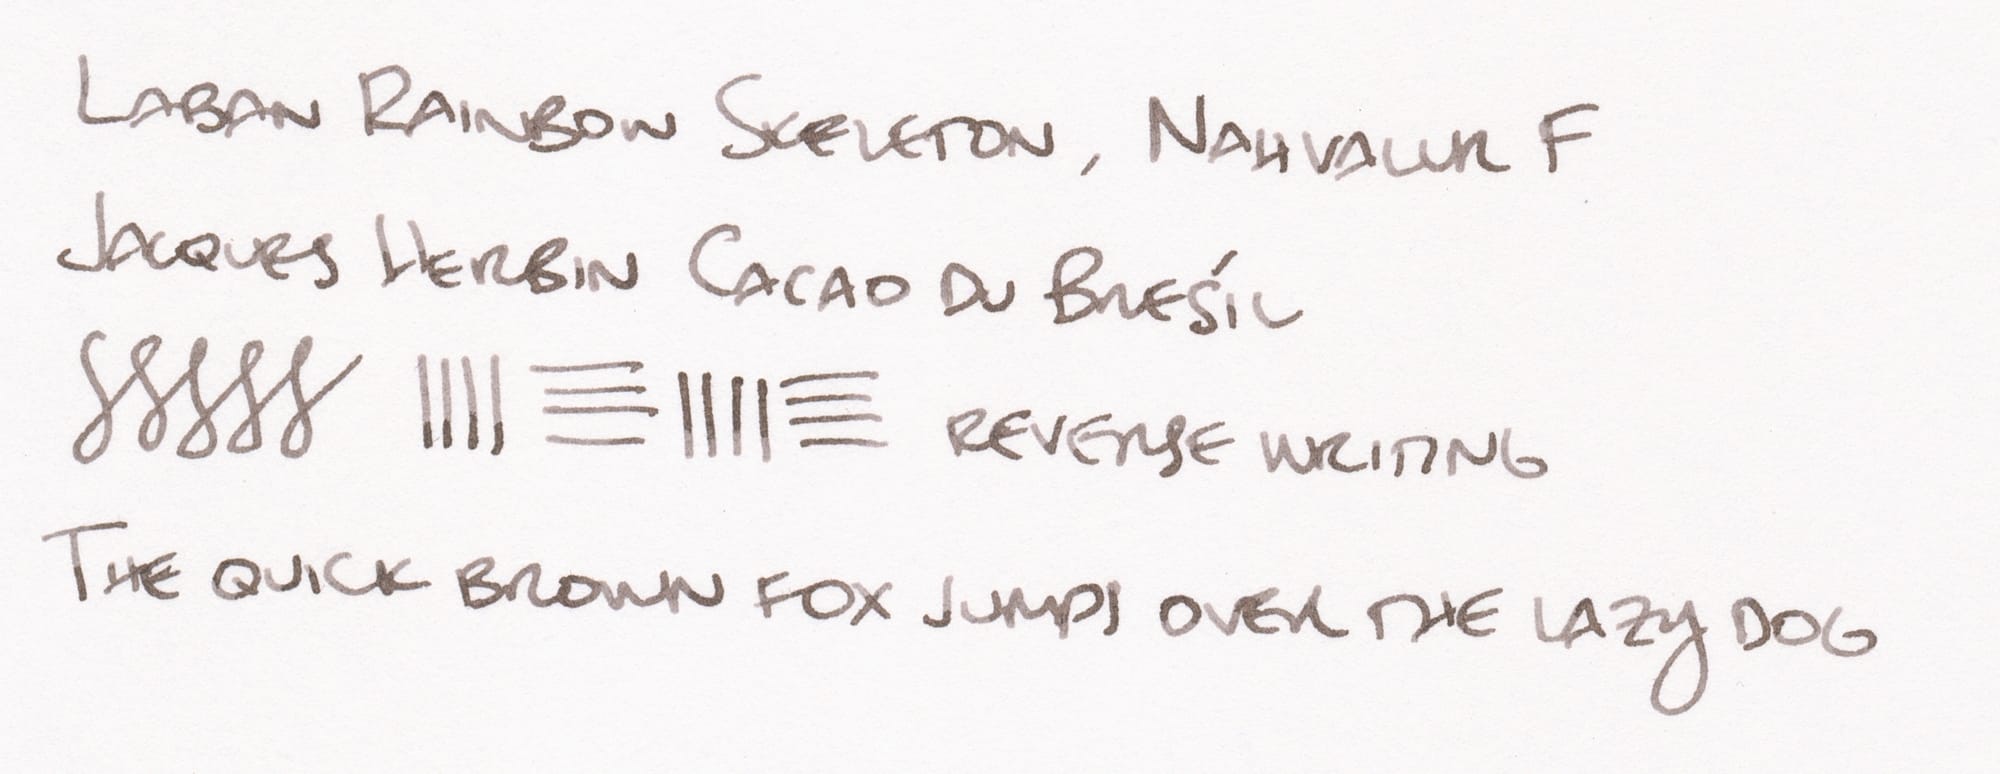 Laban Rainbow Skeleton, Nahvalur F
Jacques Herbin Cacao Du Bresíl
reverse writing
The quick brown fox jumps over the lazy dog